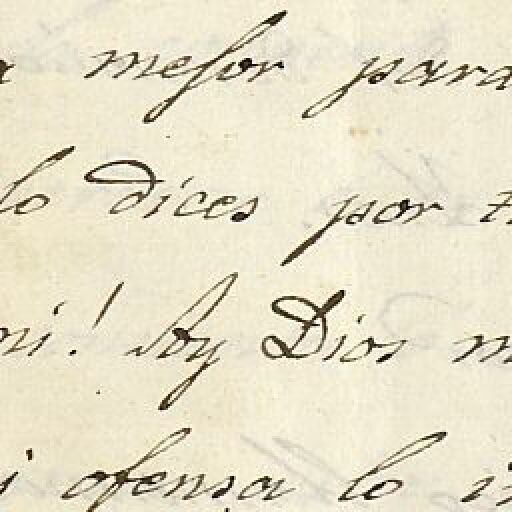 mejor para
lo dices por
mi! Ay Dios
ofensa lo